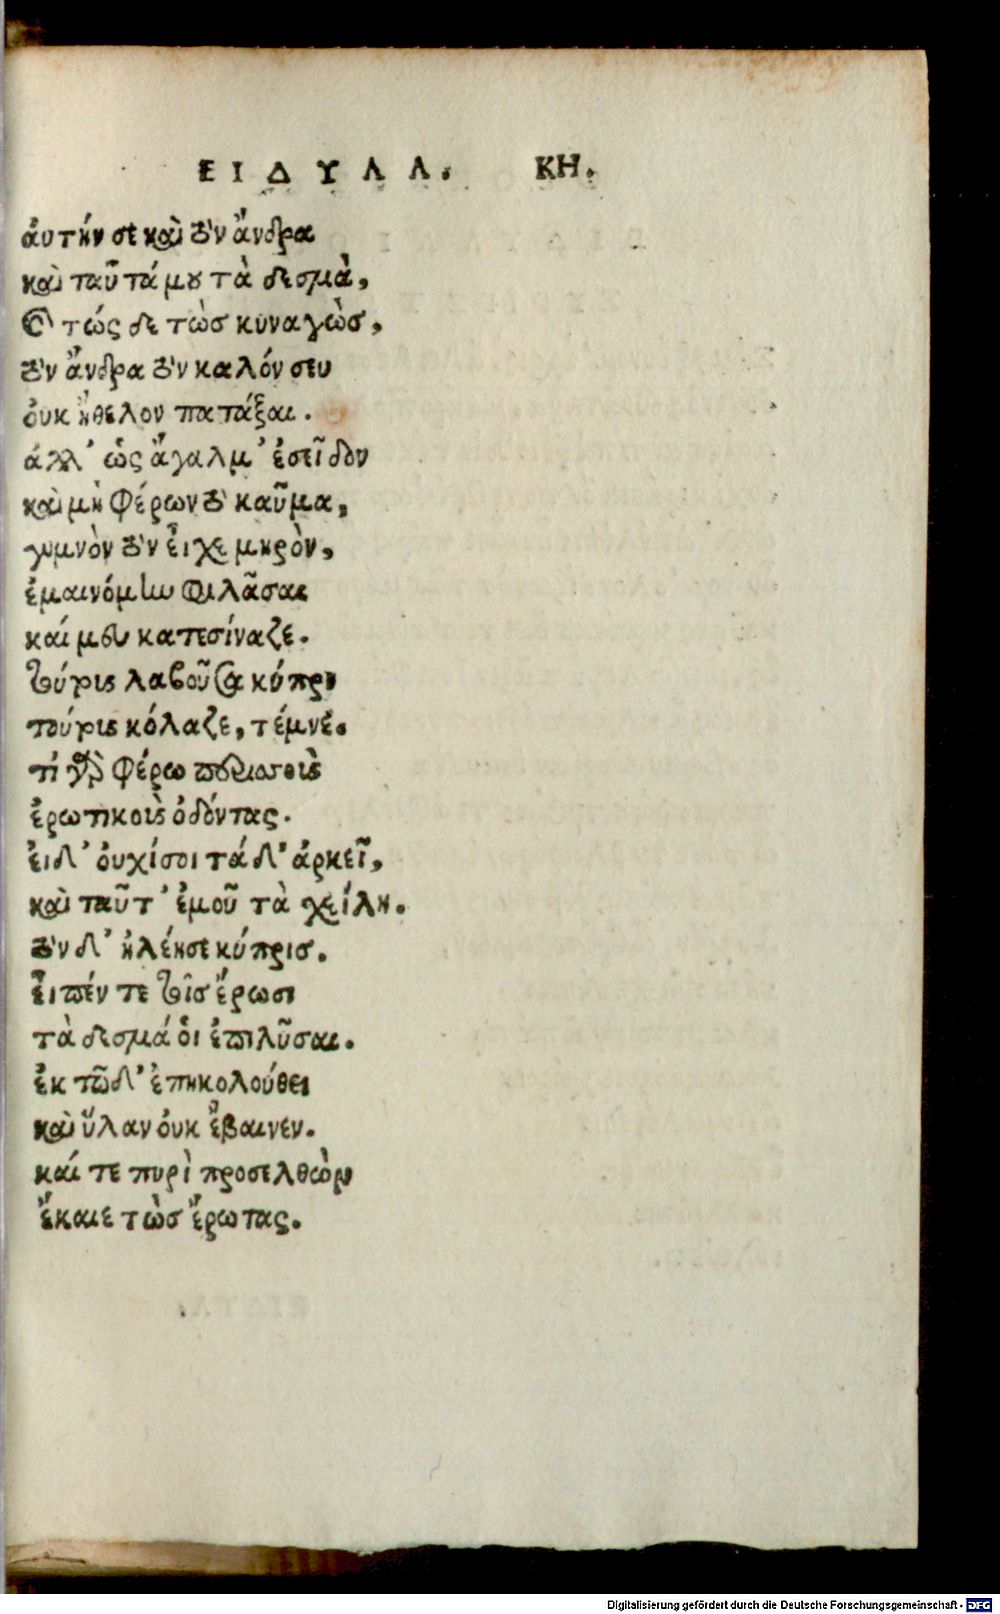 ΕΙΔΥΛΛ. ΚΗ.
ἀυτήν σε καὶ τὸν ἄνδρα
καὶ ταῦτά μου τὰ δεσμὰ,
Καὶ τώς δε τὼσ κυναγὼσ,
τὸν ἄνδρα τὸν καλόν σευ
ὀυκ ἤθελον πατάξαι.
ἀλλ' ὡς ἄγαλμ' ἐσεῖδον
καὶ μὴ φέρων τὸ καῦμα,
γυμνὸν τὸν ἐῖχε μηρὸν,
ἐμαινόμην φιλᾶσαι
καί μευ κατεσίναζε.
τούτους λαβοῦσα κύπρι
τούτους κόλαζε, τέμνε.
τί γὰρ φέρω περισσοὺς
ἐρωτικοὺς ὀδόντας.
ἐι δ' ὀυχί σοι τά δ' ἀρκεῖ,
καὶ ταῦτ' ἐμοῦ τὰ χείλη.
τὸν δ' ἠλέησε κύπρισ.
ἐῖπέν τε τοῖσ ἔρωσι
τὰ δεσμά ὁι ἐπιλῦσαι.
ἐκ τῶ δ' ἐπηκολούθει
καὶ ὕλαν ὀυκ ἔβαινεν.
καί τε πυρὶ προσελθὼν
ἔκαιε τὼσ ἔρωτας.
Digitalisierung gefördert durch die Deutsche Forschungsgemeinschaft - DFG